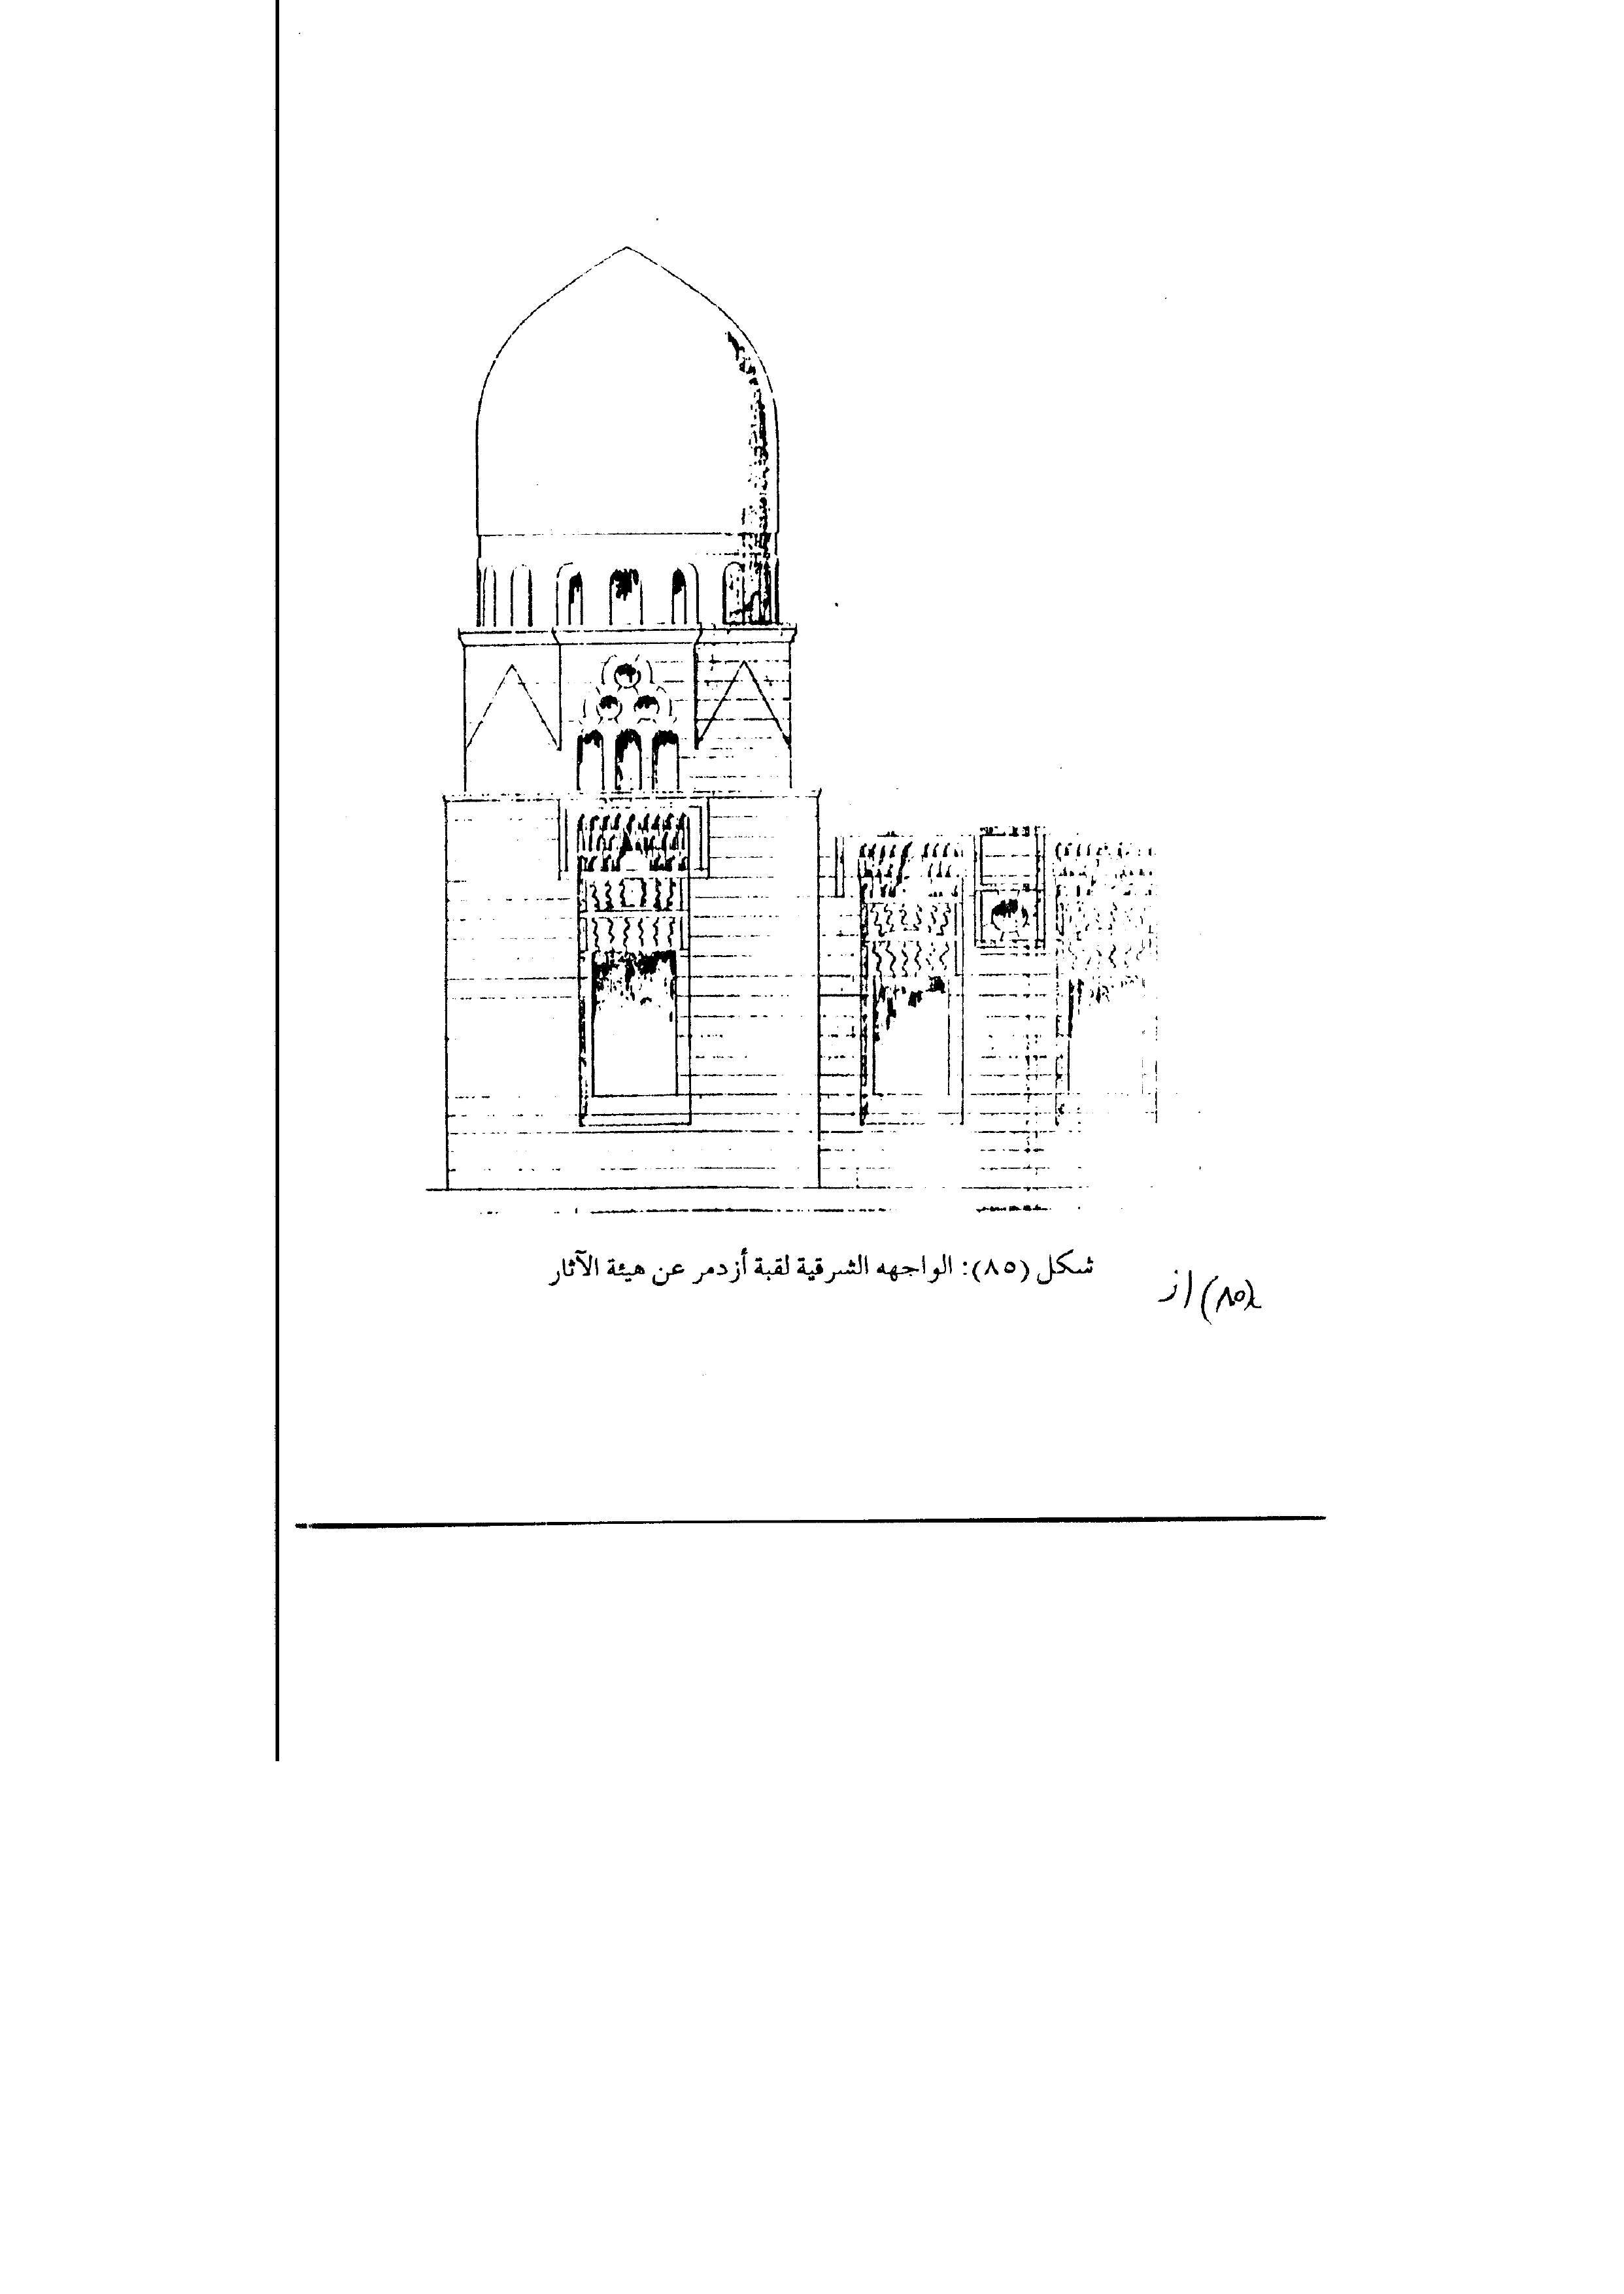 شكل (٨٥): الواجهه الشرقية لقبة أزدمر عن هيئة الآثار
(٨٥)